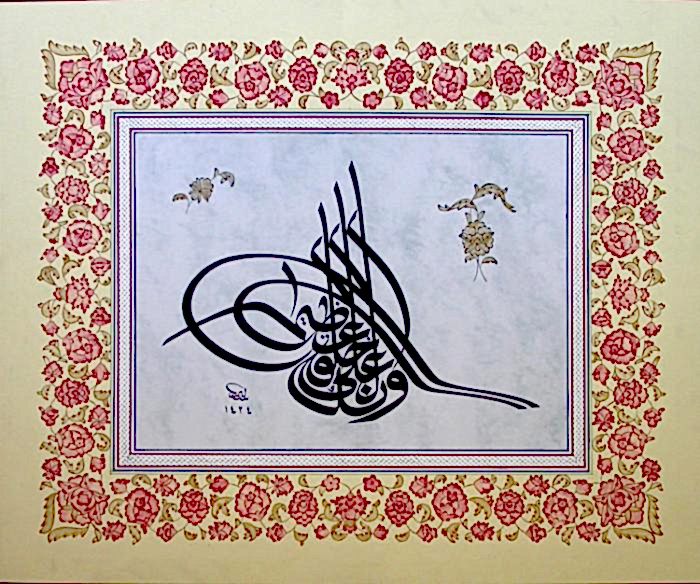 وإنك لعلى خلق عظيم
١٤٢٤